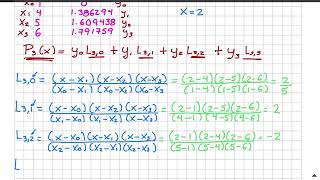 x₁ 4 1.386294 y₁ x=2
x₂ 5 1.609438 y₂
x₃ 6 1.791759 y₃
P₃(x) = y₀ L₃,₀ + y₁ L₃,₁ + y₂ L₃,₂ + y₃ L₃,₃
L₃,₀ = (x-x₁)(x-x₂)(x-x₃) / (x₀-x₁)(x₀-x₂)(x₀-x₃) = (2-4)(2-5)(2-6) / (1-4)(1-5)(1-6) = 2/5
L₃,₁ = (x-x₀)(x-x₂)(x-x₃) / (x₁-x₀)(x₁-x₂)(x₁-x₃) = (2-1)(2-5)(2-6) / (4-1)(4-5)(4-6) = 2
L₃,₂ = (x-x₀)(x-x₁)(x-x₃) / (x₂-x₀)(x₂-x₁)(x₂-x₃) = (2-1)(2-4)(2-6) / (5-1)(5-4)(5-6) = -2